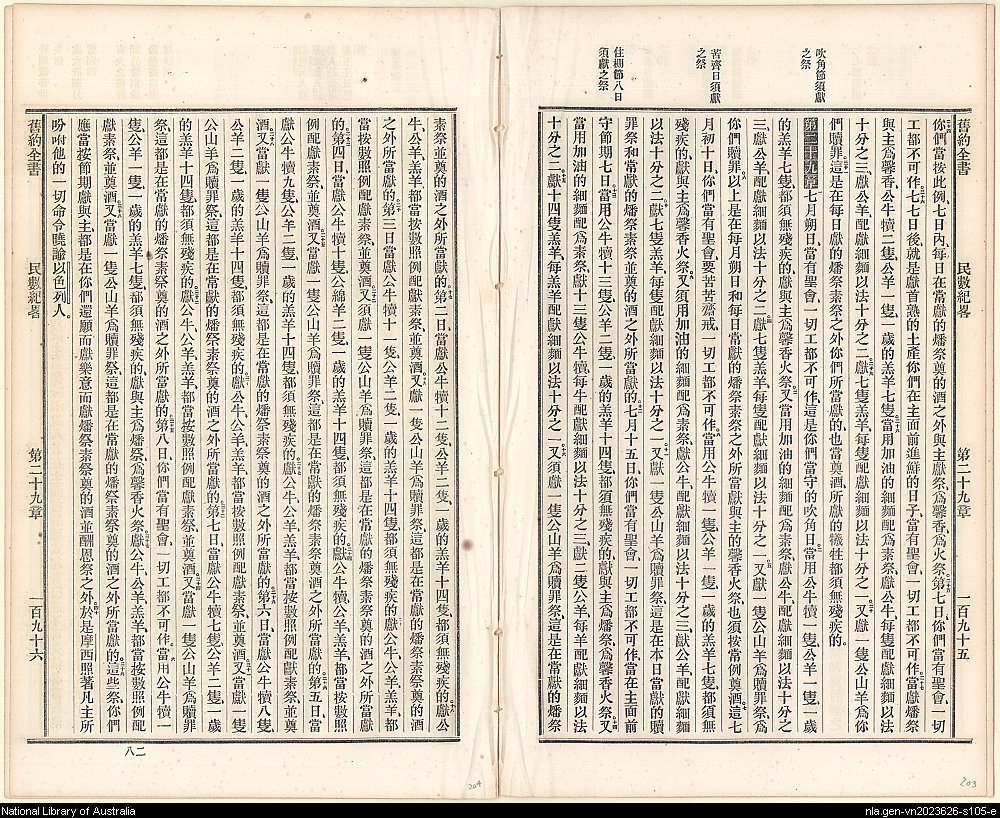 吹角節須獻
之祭
苦齊日須獻
之祭
住棚節八日
須獻之祭
舊約全書 民數紀畧 第二十九章 一百九十五
你們當按此例、七日內、每日在常獻的燔祭奠的酒之外、與主獻祭、爲馨香、爲火祭、第七日、你們當有聖會、一切
工都不可作、七七日後、就是獻首熟的土產、你們在主面前進新鮮的日子、當有聖會、一切工都不可作、當獻燔祭
與主爲馨香、公牛犢二隻、公羊一隻、一歲的羔羊七隻、當用加油的細麵配爲素祭、獻公牛、每牛配獻細麵以法
十分之三、獻公羊、配獻細麵以法十分之二、獻七隻羔羊、每隻配獻細麵以法十分之一、又獻一隻公山羊、爲你
們贖罪、這是在每日獻的燔祭素祭之外、你們所當獻的、也當奠酒、所獻的犧牲、都須無殘疾的。
第二十九章 七月朔日、當有聖會、一切工都不可作、這是你們當守的吹角日、當用公牛犢一隻、公羊一隻、一歲
的羔羊七隻、都須無殘疾的、獻與主爲馨香火祭、又當用加油的細麵配爲素祭、獻公牛、配獻細麵以法十分之
三、獻公羊、配獻細麵以法十分之二、獻七隻羔羊、每隻配獻細麵以法十分之一、又獻一隻公山羊爲贖罪祭、爲
你們贖罪、以上是在每月朔日和每日常獻的燔祭素祭之外所當獻與主的馨香火祭、也須按常例奠酒、這七
月初十日、你們當有聖會、要苦苦齋戒、一切工都不可作、當用公牛犢一隻、公羊一隻、一歲的羔羊七隻、都須無
殘疾的、獻與主爲馨香火祭、又須用加油的細麵配爲素祭、獻公牛、配獻細麵以法十分之三、獻公羊、配獻細麵
以法十分之二、獻七隻羔羊、每隻配獻細麵以法十分之一、又獻一隻公山羊爲贖罪祭、這是在本日當獻的贖
罪祭、和常獻的燔祭素祭、並奠的酒之外、所當獻的、七月十五日、你們當有聖會、一切工都不可作、當在主面前
守節期七日、當用公牛犢十三隻、公羊二隻、一歲的羔羊十四隻、都須無殘疾的、獻與主爲燔祭、爲馨香火祭、又
當用加油的細麵配爲素祭、獻十三隻公牛犢、每牛配獻細麵以法十分之三、獻二隻公羊、每羊配獻細麵以法
十分之二、獻十四隻羔羊、每隻配獻細麵以法十分之一、又須獻一隻公山羊爲贖罪祭、這是在常獻的燔祭
素祭、並奠的酒之外所當獻的、第二日、當獻公牛犢十二隻、公羊二隻、一歲的羔羊十四隻、都須無殘疾的、獻公
牛、公羊、羔羊、都當按數照例配獻素祭、並奠酒、又獻一隻公山羊爲贖罪祭、這都是在常獻的燔祭素祭奠的酒
之外所當獻的、第三日、當獻公牛犢十一隻、公羊二隻、一歲的羔羊十四隻、都須無殘疾的、獻公牛、公羊、羔羊、都
當按數照例配獻素祭、並奠酒、又須獻一隻公山羊爲贖罪祭、這都是在常獻的燔祭素祭奠的酒之外所當獻
的、第四日、當獻公牛犢十隻、公綿羊二隻、一歲的羔羊十四隻、都須無殘疾的、獻公牛犢、公羊、羔羊、都當按數照
例配獻素祭、並奠酒、又當獻一隻公山羊爲贖罪祭、這都是在常獻的燔祭素祭奠酒之外所當獻的、第五日、當
獻公牛犢九隻、公羊二隻、一歲的羔羊十四隻、都須無殘疾的、獻公牛、公羊、羔羊、都當按數照例配獻素祭、並奠
酒、又當獻一隻公山羊爲贖罪祭、這都是在常獻的燔祭素祭奠的酒之外所當獻的、第六日、當獻公牛犢八隻、
公羊二隻、一歲的羔羊十四隻、都須無殘疾的、獻公牛、公羊、羔羊、都當按數照例配獻素祭、並奠酒、又當獻一隻
公山羊爲贖罪祭、這都是在常獻的燔祭素祭奠的酒之外所當獻的、第七日、當獻公牛犢七隻、公羊二隻、一歲
的羔羊十四隻、都須無殘疾的、獻公牛、公羊、羔羊、都當按數照例配獻素祭、並奠酒、又當獻一隻公山羊爲贖罪
祭、這都是在常獻的燔祭素祭奠的酒之外所當獻的、第八日、你們當有聖會、一切工都不可作、當用公牛犢一
隻、公羊一隻、一歲的羔羊七隻、都須無殘疾的、獻與主爲燔祭、爲馨香火祭、獻公牛、公羊、羔羊、都當按數照例配
獻素祭、並奠酒、又當獻一隻公山羊爲贖罪祭、這都是在常獻的燔祭素祭奠的酒之外所當獻的、這些祭、你們
應當按節期獻與主、都是在你們還願而獻、樂意而獻、燔祭素祭奠的酒、並酬恩祭之外、於是摩西照著凡主所
吩咐他的一切命令曉諭以色列人。
舊約全書 民數紀畧 第二十九章 一百九十六
八二
204
203
National Library of Australia
nla.gen-vn2023626-s105-e